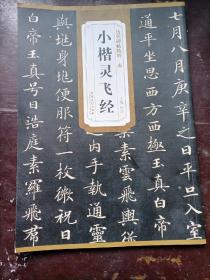 七月八月庚辛之日平旦入室
平坐思西方太素玉真白帝
素雲飛輿
内手執通靈
與兆身兆便服符一枚微祝曰
白帝玉真号曰浩庭素羅飛帬
小楷灵飞经